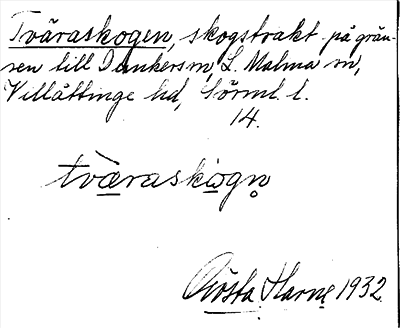 Tväraskogen, skogstrakt på grän-
sen till Dunkersm, L. Malma sn,
Villåttinge hd, Sörml. l.
14.
tvæ̀raskωgn̥
Gösta Harne 1932